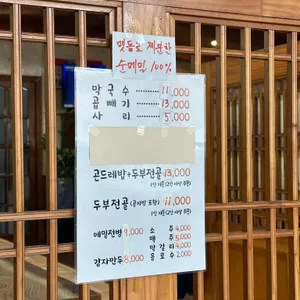 맷돌로 제분한
순메밀 100%
막국수 ········· 11,000
곱빼기 ········· 13,000
사리 ········· 5,000
곤드레밥+두부전골 13,000
두부전골 (공기밥 포함) 11,000
메밀전병 9,000 소주 4,000
맥주 5,000
막걸리 4,000
감자만두 8,000 음료수 2,000